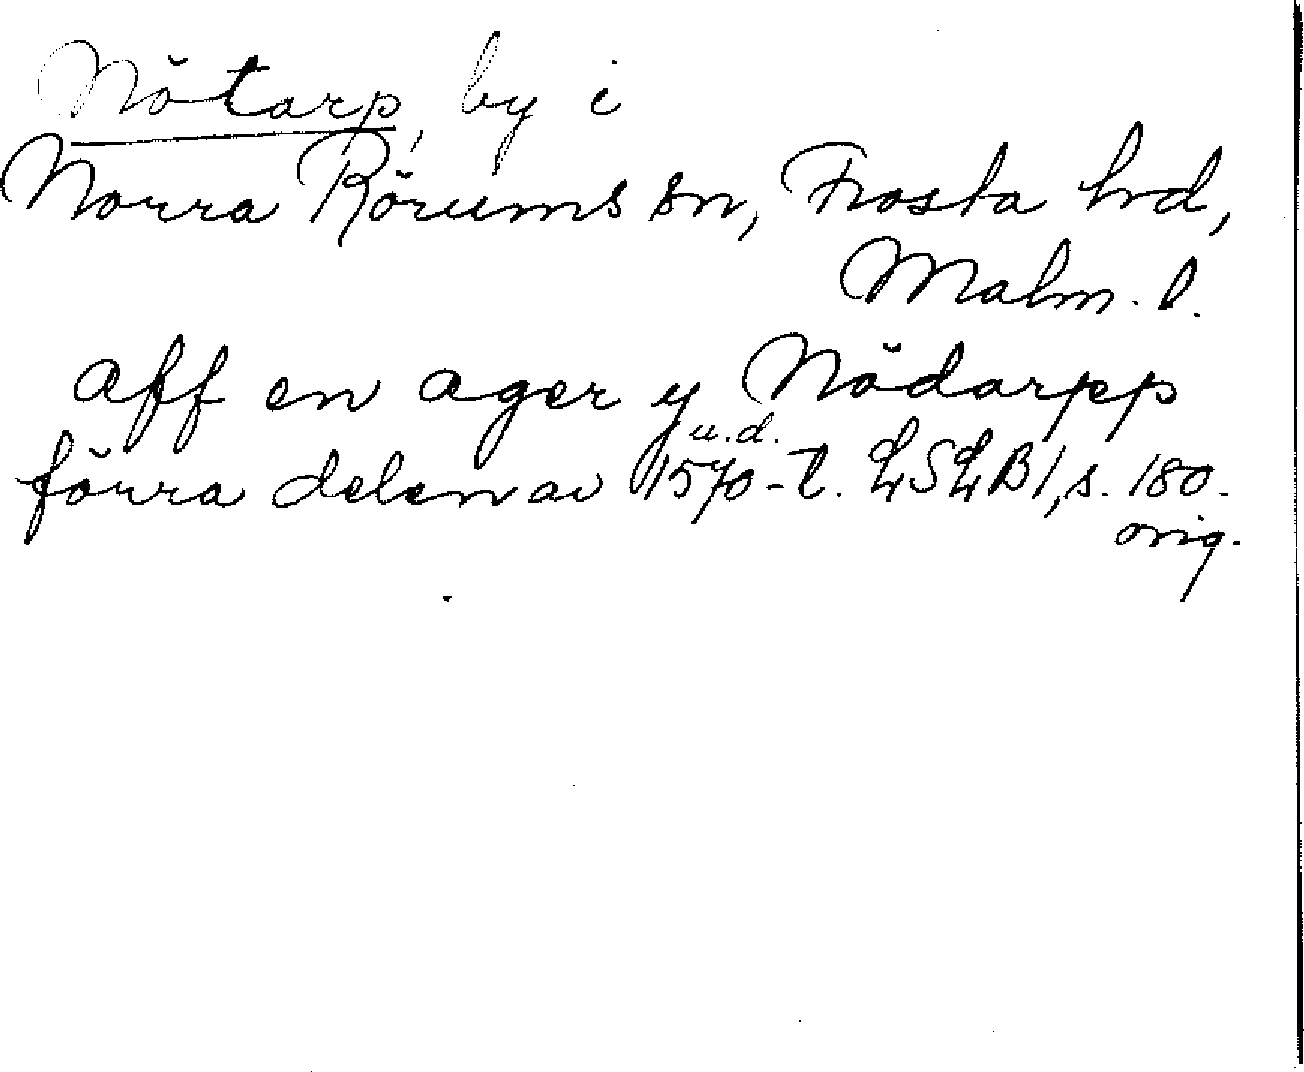 Nötarp, by i
Norra Rörums sn, Frosta hd,
Malm. l.
aff en ager y Nödarpp
u.d.
förra delen av 1570-t. LSLB 1, s. 180.
orig.